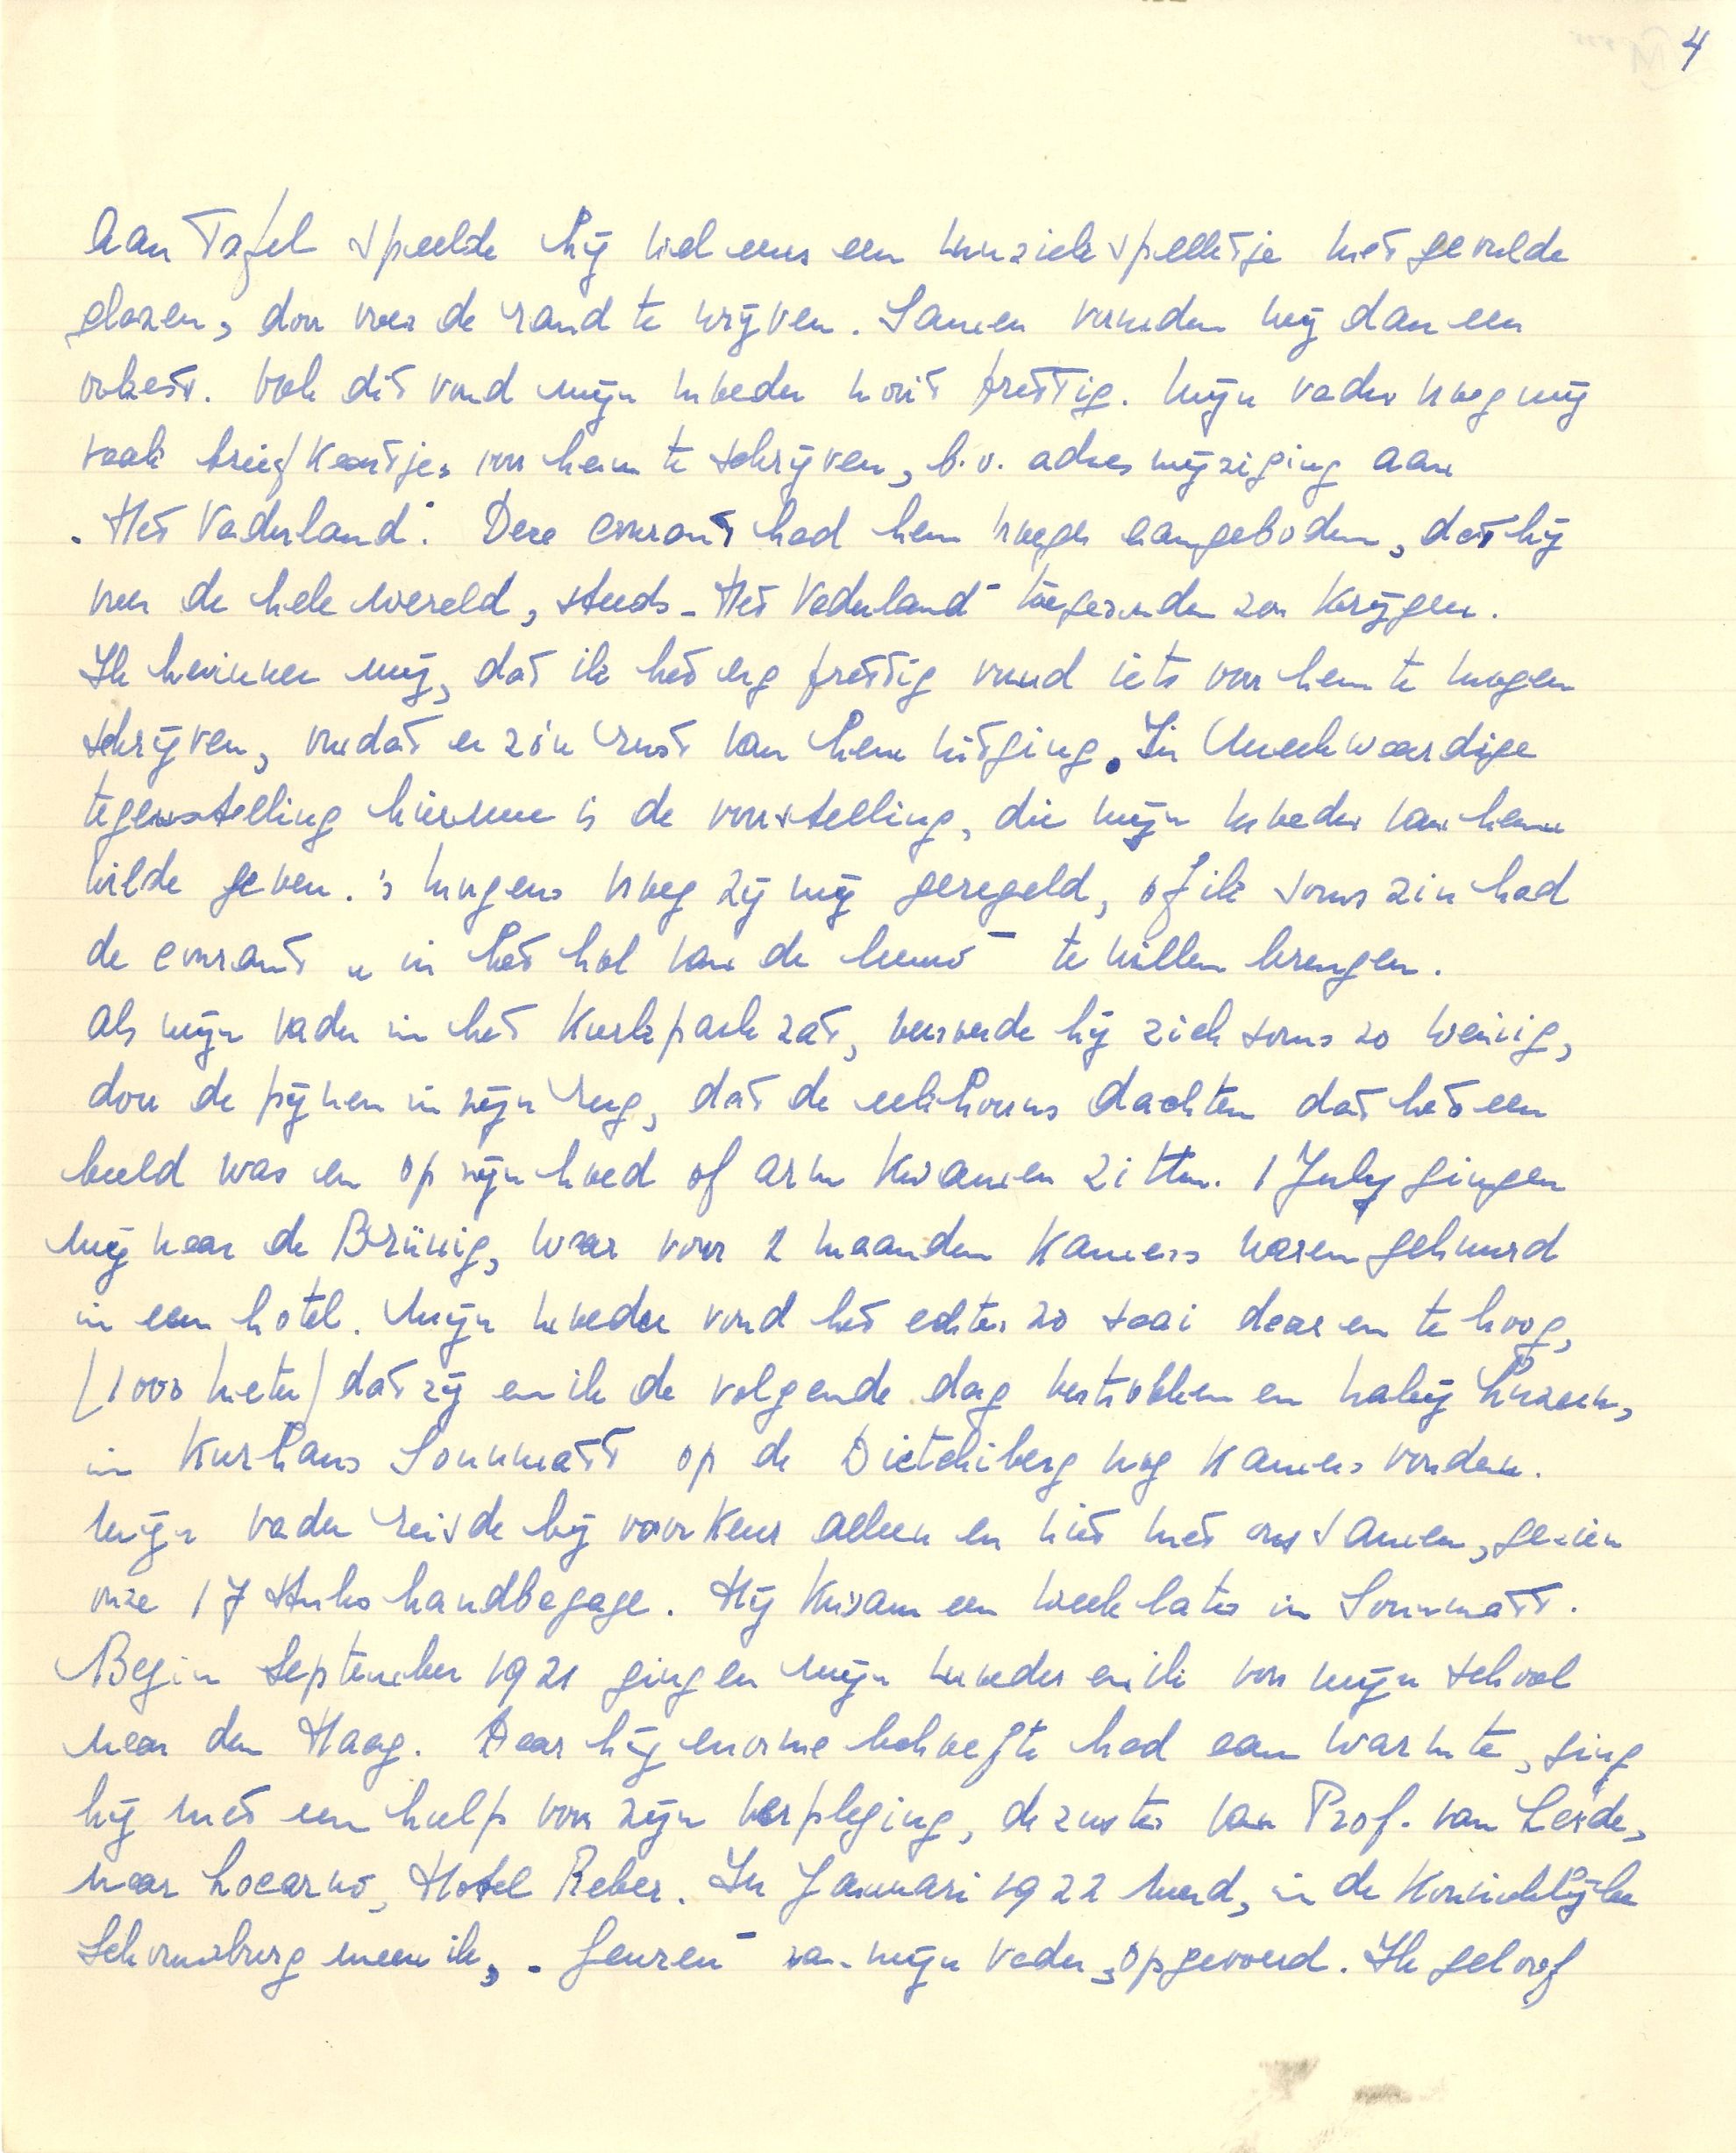 4
Aan Tafel speelde hij wel eens een muziekspelletje met gevulde
glazen, door over de rand te wrijven. Samen vormden wij dan een
orkest. Ook dit vond mijn moeder nooit prettig. Mijn vader vroeg mij
vaak briefkaartjes voor hem te schrijven, b.v. adreswijziging aan
"Het Vaderland". Deze courant had hem vroeger aangeboden, dat hij
over de hele wereld, steeds "Het Vaderland" toegezonden zou krijgen.
Ik herinner mij, dat ik het erg prettig vond iets voor hem te mogen
schrijven, omdat er zo'n rust van hem uitging. In merkwaardige
tegenstelling hiermee is de voorstelling, die mijn moeder van hem
wilde geven. 's Morgens vroeg zij mij geregeld, of ik soms zin had
de courant "in het hol van de leeuw" te willen brengen.
Als mijn vader in het Kurkpark zat, bewoog hij zich soms zo weinig,
door de pijnen in zijn rug, dat de eekhoorns dachten dat het een
beeld was en op zijn hoed of arm kwamen zitten. 1 July gingen
wij naar de Brünig, waar voor 2 maanden kamers waren gehuurd
in een hotel. Mijn moeder vond het echter zo saai daar en te hoog,
(1000 meter) dat zij en ik de volgende dag vertrokken en nabij Luzern,
in Kurhaus Sonnmatt op de Dietschiberg nog kamers vonden.
Mijn vader reisde bij voorkeur alleen en niet met ons samen, gezien
onze 17 stuks handbagage. Hij kwam een week later in Sonnmatt.
Begin September 1921 gingen mijn moeder en ik voor mijn school
naar den Haag. Daar hij enorme behoefte had aan warmte, ging
hij met een hulp voor zijn verpleging, de zuster van Prof. van Leyde,
naar Locarno, Hotel Reber. In Januari 1922 werd, in de Koninklijke
Schouwburg meen ik, "Geuzen" van mijn vader, opgevoerd. Ik geloof